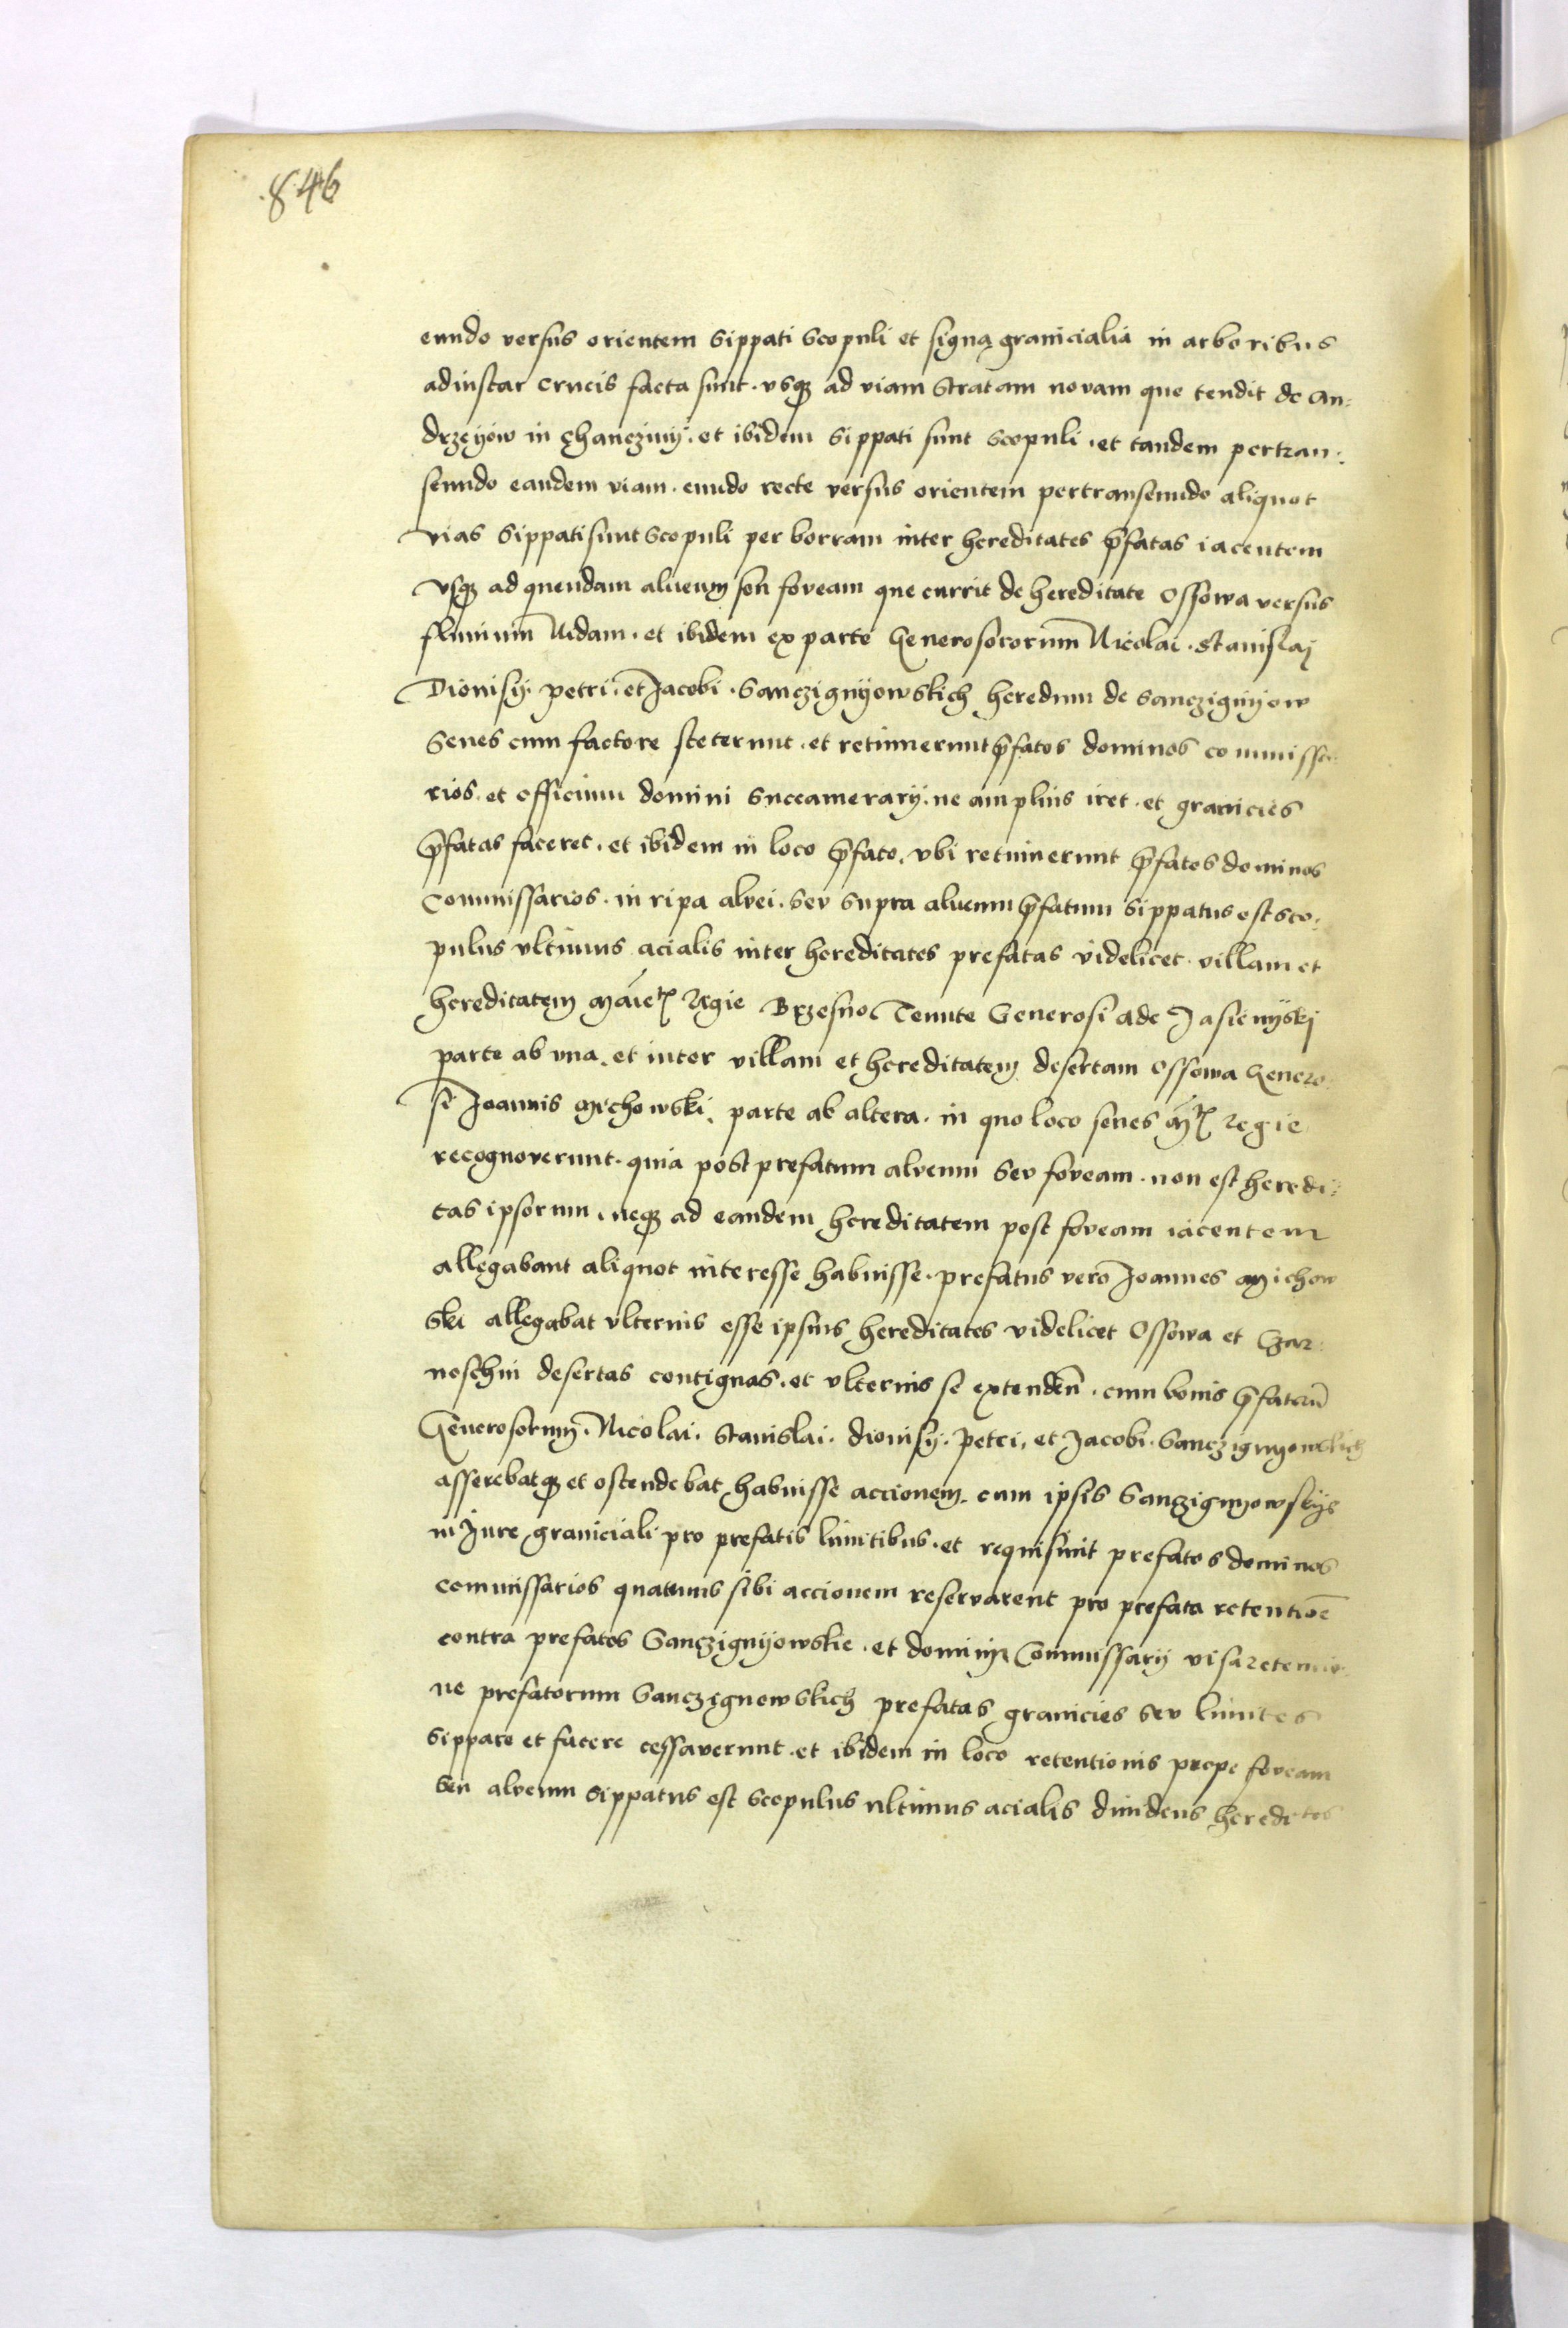 846
eundo versus orientem Sippati Scopuli et signa granicialia in arboribus
adinstar crucis facta sunt. vsq3 ad viam Stratam novam que tendit de An=
drzeyow in Chanczyny. et ibidem Sippati sunt Scopuli. et tandem pertran=
seundo eandem viam. eundo recte versus orientem pertranseundo aliquot
vias Sippati sunt Scopuli per borram inter hereditates p̄fatas iacentem
vsq3 ad quendam alueum seu foveam que currit de hereditate Ossowa versus
fluuium Nidam. et ibidem ex parte Generosororum Nicolai. Stanislaj
Dionisÿ. petri. et Jacobi. Sanczignyowskich heredum de Sanczignyow
Senes cum factore steterunt. et retinuerunt p̄fatos dominos commissa
rios. et officium domini Succamerarÿ. ne amplius iret. et granicies
p̄fatas faceret. et ibidem in loco p̄fato. vbi retinuerunt p̄fatos dominos
Commissarios. in ripa alvei. Sev Supra alueum p̄fatum Sippatus est sco=
pulus vltimus acialis inter hereditates prefatas videlicet. villam et
hereditatem Regie Brzesno Tenute Generosi Ade Jasienÿskj
parte ab vna. et inter villam et hereditatem desertam Ossowa Genero=
si Joannis Michowski. parte ab altera. in quo loco senes Regie
recognoverunt. quia post prefatum alveum Sev foveam. non est heredi=
tas ipsorum. neq3 ad eandem hereditatem post foveam iacentem
allegabant aliquot interesse habuisse. prefatus vero Joannes Michow
ski allegabat vlterius esse ipsius hereditates videlicet Ossowa et Czar=
noschin desertas contiguas. et vlterius se extendeñ. cum bonis p̄fatorū
Generosorum. Nicolai. Stanislai. dionisÿ. petri. et Jacobi. Sanczignyowskich
asserebatq3 et ostendebat habuisse accionem. cum ipsis Sanczignyowskÿs
in Jure graniciali pro prefatis limitibus. et requisiuit prefatos dominos
commissarios quatenus sibi accionem reservarent pro prefata retentiōe
contra prefatos Sanczignÿowskie. et dominÿ Commissarÿ visa retentio
ne prefatorum Sanczignowskich prefatas granicies sev limites
Sippare et facere cessaverunt. et ibidem in loco retentionis prope foveam
Seu alveum Sippatus est Scopulus ultimus acialis diuidens